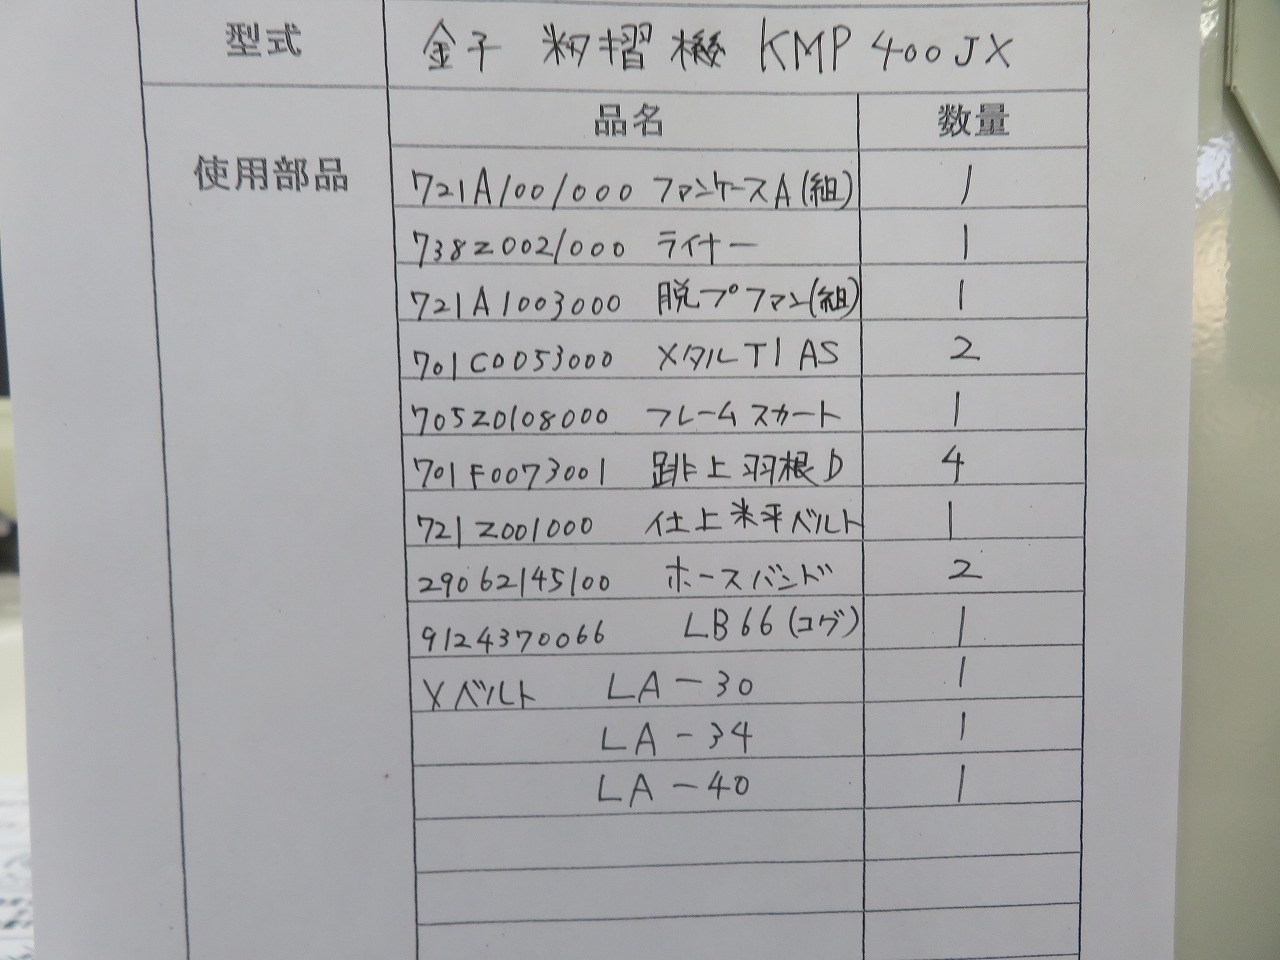 型式 金子 籾摺機 KMP 400JX
使用部品 品名 数量
721A1001000 ファンケースA(組) 1
738Z0021000 ライナー 1
721A1003000 脱プファン(組) 1
701C0053000 メタルT1 AS 2
705Z0108000 フレームスカート 1
701F0073001 跳上羽根D 4
721Z001000 仕上米平ベルト 1
29062145100 ホースバンド 2
9124370066 LB66(コグ) 1
Vベルト LA-30 1
LA-34 1
LA-40 1